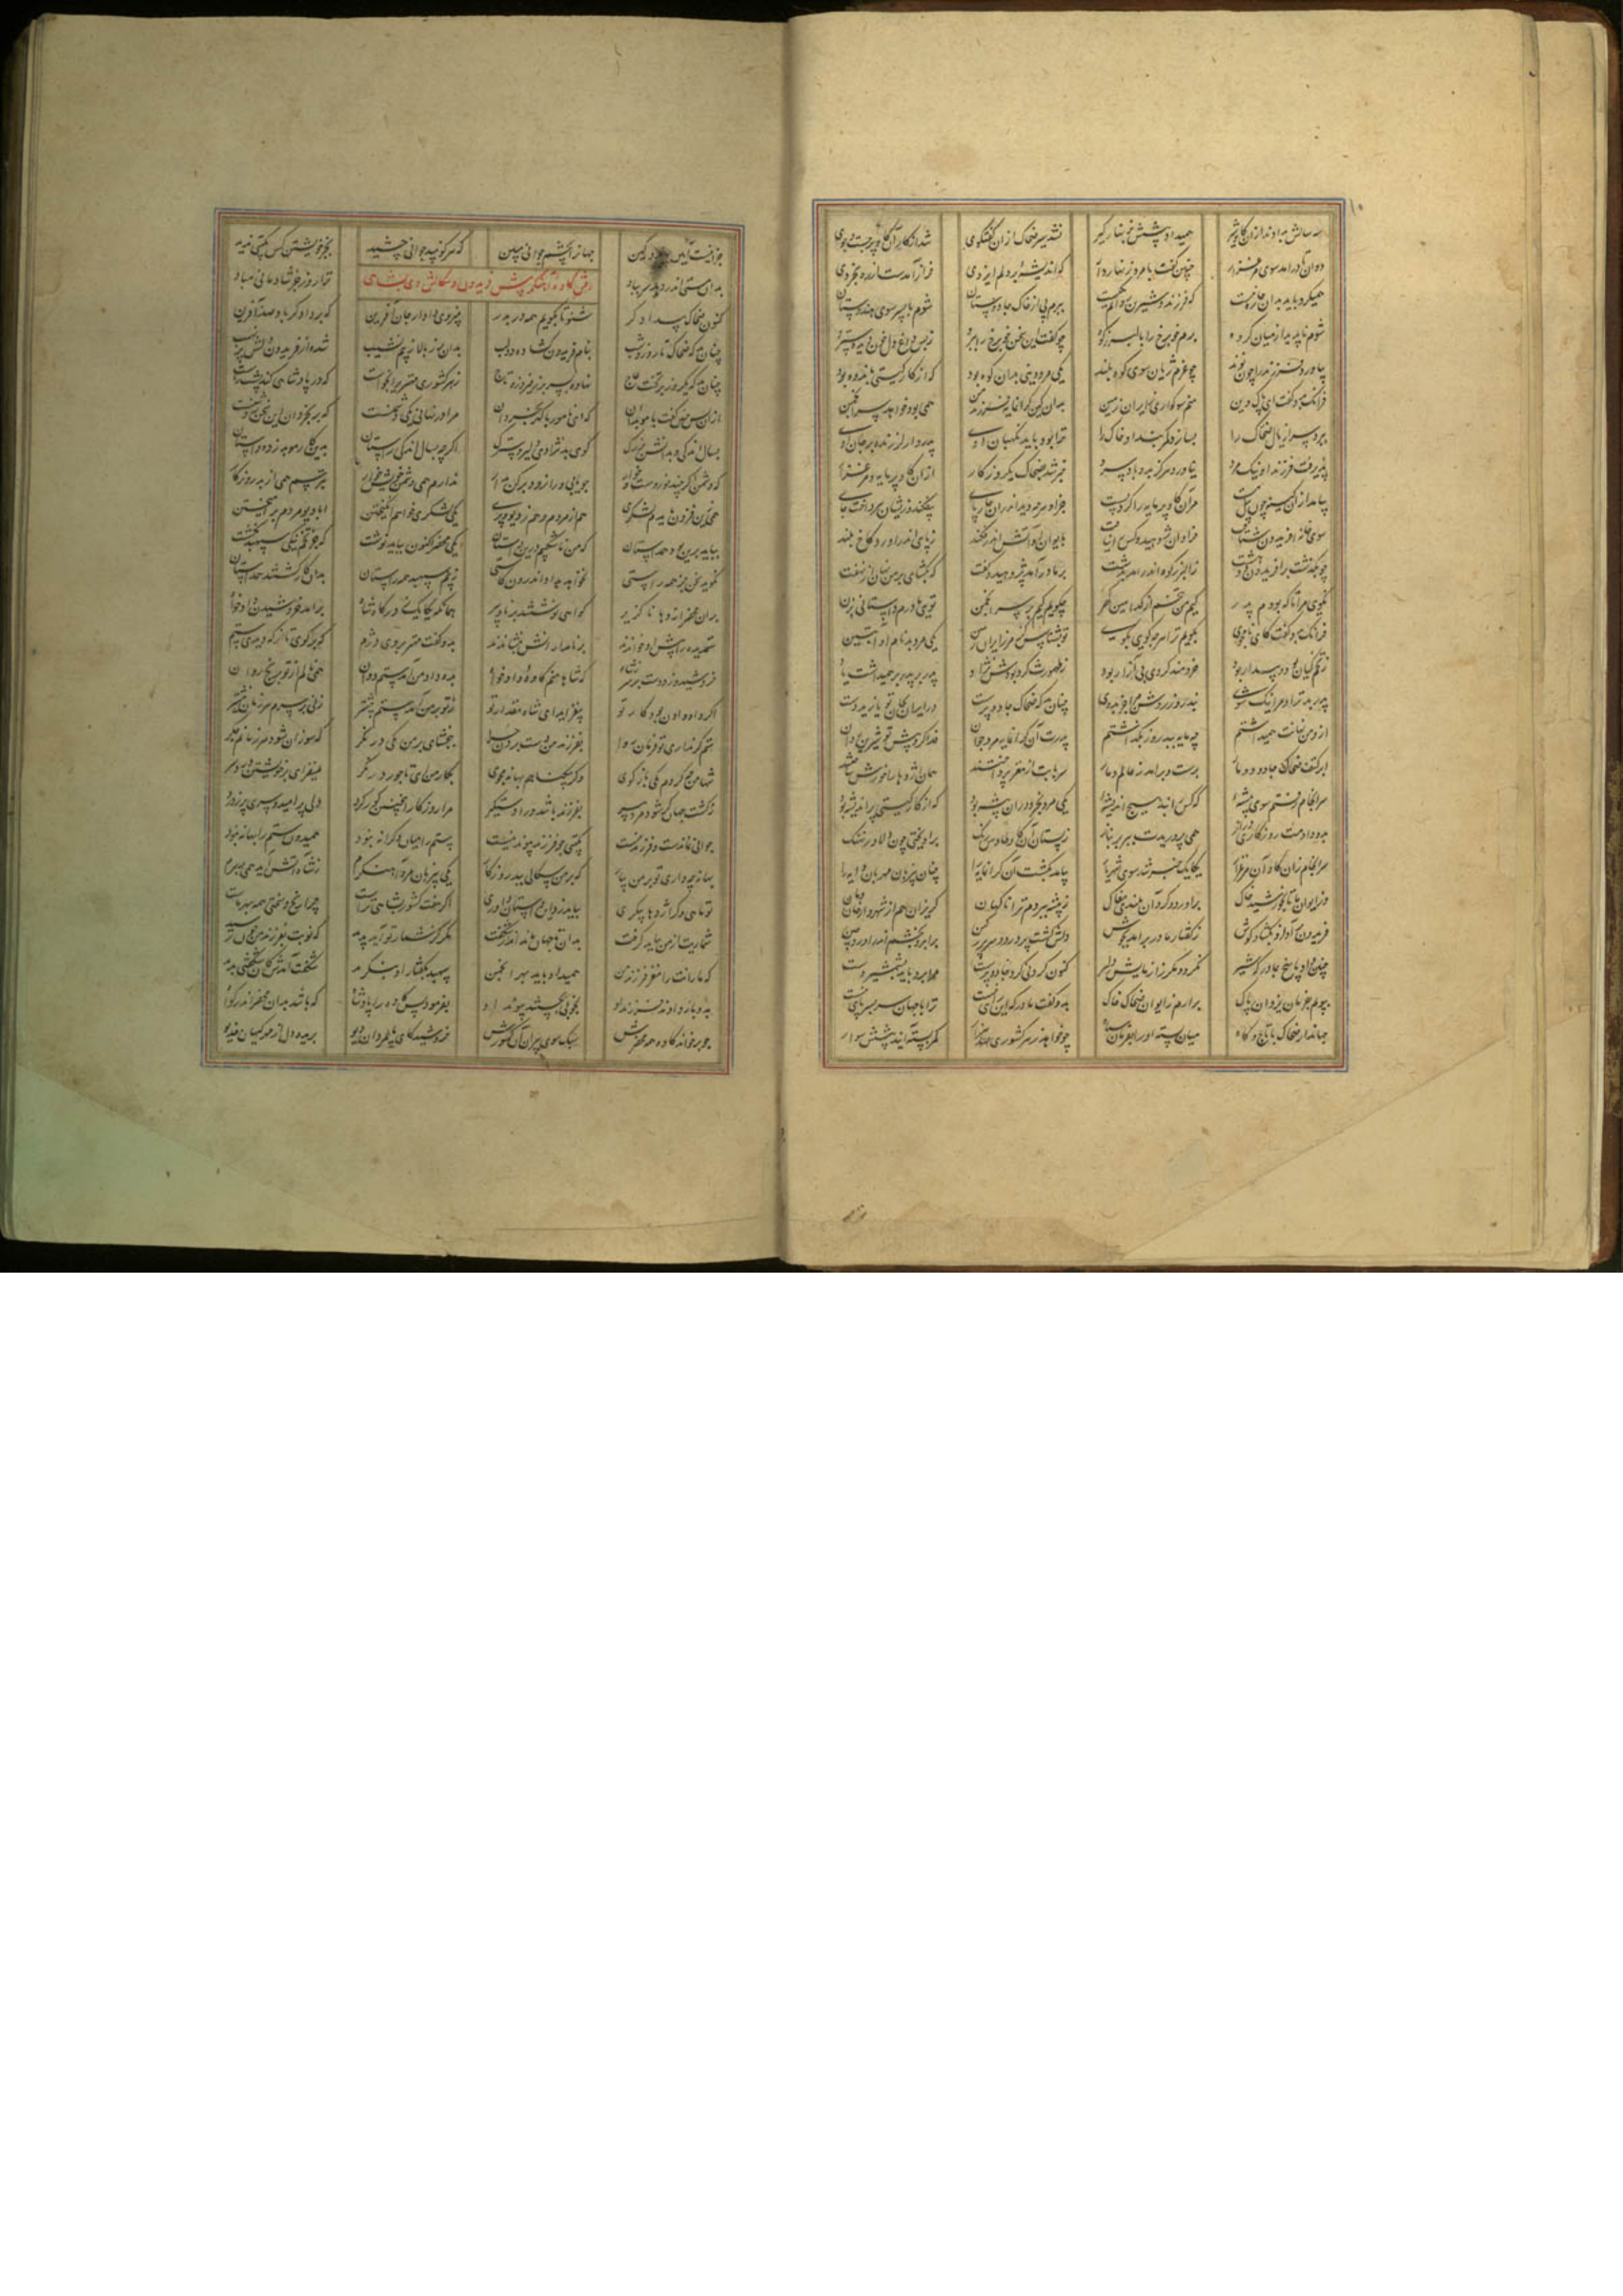 سه سالش بداوند ازان گاو شیر همیداد پشش نو بنهار گیر نشد سیر ضحاک ازان گفتگوی شد از گاو آن گاو پر جست و جوی
دوان تا درآمد سوی مرغزار چنین گفت با مرد زنهاردار که اندیشهٔ بر دلم ایزدی فراز آمدست از ره بخردی
همیکرد باید بدان چاره‌یست که فرزند و شیرین روان یکیست ببرم پی از خاک جادوستان شوم با پسر سوی هندوستان
شوم ناپدید از میان گروه برم خوبرخ را بالبرز کوه چو گفت این سخن خوبرخ را ببرد ز بس داغ دل خون دیده سترد
بیاورد فرزند را چون نوند چو غرم ژیان سوی کوه بلند یکی مرد دینی بدان کوه بود که از کار گیتی بی‌اندوه بود
فرانک بدو گفت ای پاک دین منم سوکواری ز ایران زمین بدان کین گرانمایه فرزند من همی بود خواهد سر انجمن
ببرد سر از یال ضحاک را بسازد کمربند او خاک را ترا بود باید نگهبان اوی پدروار لرزنده بر جان اوی
پذیرفت فرزند او نیک مرد نیاورد هرگز بدو باد سرد خبر شد بضحاک یکروزگار ازان گاو پرمایه و مرغزار
بیامد ازان کینه چون پیل مست مران گاو پرمایه را کرد پست جز او هرچه دید اندران چارپای بیفکند وزیشان بپرداخت جای
سوی خانه افریدون شتافت فراوان پژوهید و کس را نیافت بایوان او آتش اندر فکند ز پای اندر آورد کاخ بلند
چو بگذشت بر افریدون دو هشت ز البرز کوه اندر آمد بدشت بر مادر آمد پژوهید و گفت که بگشای بر من نهان از نهفت
بگوی مرا تا که بودم پدر کیم من بتخم از کدامین گهر چگویم کیم بر سر انجمن یکی دانشی داستانی بزن
فرانک بدو گفت کای نامجوی بگویم ترا هرچه گویی بگوی تو بشناس کز مرز ایران زمین یکی مرد بد نام او آبتین
ز تخم کیان بود و بیدار بود خردمند و گرد و بی‌آزار بود ز طهمورث گرد بودش نژاد پدر بر پدر بر همیداشت یاد
پدر بد ترا و مرا نیک شوی نبد روز روشن مرا جز بدوی چنان بد که ضحاک جادوپرست از ایران بجان تو یازید دست
ازو من نهانت همیداشتم چه مایه ببد روز بگذاشتم پدرت آن گرانمایه مرد جوان فدا کرد پیش تو شیرین روان
ابر کتف ضحاک جادو دو مار برست و برآمد ز عالم دمار سر بابت از مغز پرداختند همان اژدها را خورش ساختند
سرانجام رفتم سوی بیشهٔ که کس را نه زان بیشه اندیشهٔ یکی مرد بخرد دران بیشه بود که از کار گیتی پراندیشه بود
بدو دادمت روزگاری دراز همی پروریدت ببر بر بناز ز پستان آن گاو طاوس رنگ برافراختی چون دلاور نهنگ
سرانجام زان گاو و آن مرغزار یکایک خبر شد سوی شهریار بیامد بکشت آن گرانمایه را چنان بی‌زبان مهربان دایه را
وز ایوان ما تا بخورشید خاک برآورد و کرد آن بلندی مغاک ز بیشه ببردم ترا ناگهان گریزان هم از شهر و از خان و مان
فریدون برآشفت و بگشاد گوش ز گفتار مادر برآمد بجوش دلش گشت پردرد و سر پر ز کین بابرو بخشم اندر آورد چین
چنین داد پاسخ بمادر که شیر نگردد مگر بآزمایش دلیر کنون کردنی کرد جادوپرست مرا برد باید بشمشیر دست
بپویم بفرمان یزدان پاک برآرم ز ایوان ضحاک خاک بدو گفت مادر که این رای نیست ترا با جهان سر بسر پای نیست
جهاندار ضحاک با تاج و گاه میان بسته او را بفرمان سپاه چو خواهد ز هر کشوری صد هزار کمر بسته آیند پیشش سوار
جز اینست آیین و کین جهان را بچشم جوانی مبین که هر کو نبید جوانی چشید بجز خویشتن کس بگیتی ندید
بدان مستی اندر دهد سر بباد ترا روز جز شاد و خرم مباد
رفتن کاوه آهنگر پیش فریدون
کنون ضحاک بیدادگر شنو تا بگویم همه در بدر ز نیروی دادار جان آفرین که بر دادگر باد صد آفرین
چنان بد که ضحاک تا روز و شب بنام فریدون گشاده دو لب بدان برز بالا ز بیم نشیب شده از فریدون دلش پر نهیب
چنان بد که یکروز بر تخت عاج نهاده بسر بر ز پیروزه تاج ز هر کشوری مهتران را بخواست که در پادشاهی کند پشت راست
ازان پس چنین گفت با موبدان که ای نامور با گهر بخردان مرا در نهانی یکی دشمنست که بر بخردان این سخن روشنست
بسال اندکی و بدانش بزرگ گوی بدنژادی دلیر و سترگ اگرچه بسال اندکی راستان بدین کار موبد زد داستان
که دشمن اگرچند خوردست و خوار ندارم همی دشمن خرد خوار بترسم همی از بد روزگار
همی زین فزون بایدم لشکری هم از مردم و هم ز دیو و پری یکی لشکری خواهم انگیختن ابا دیو مردم برآمیختن
بباید برین بود همداستان که من ناشکیبم درین داستان یکی محضر اکنون بباید نوشت که جز تخم نیکی سپهبد نکشت
نگوید سخن جز همه راستی نخواهد بداد اندرون کاستی ز بیم سپهبد همه راستان بدان کار گشتند همداستان
بران محضر اژدها ناگزیر گواهی نوشتند برنا و پیر همانگه یکایک ز درگاه شاه برآمد خروشیدن دادخواه
ستم‌دیده را پیش او خواندند بر نامدارانش بنشاندند بدو گفت مهتر بروی دژم که برگوی تا از که دیدی ستم
خروشید و زد دست بر سر ز شاه که شاها منم کاوهٔ دادخواه بده داد من کآمدستم دوان همی نالم از تو برنج روان
اگر داد دادن بود کار تو بیفزاید ای شاه مقدار تو ز تو بر من آمد ستم بیشتر زنی بر دلم هر زمان نیشتر
ستم گر نداری تو بر من روا بفرزند من دست بردن چرا ببخشای بر من یکی در نگر که سوزان شود هر زمانم جگر
شها من چه کردم یکی بازگوی وگر بیگناهم بهانه مجوی بحال من ای تاجور در نگر میفزای بر خویشتن دردسر
مرا روزگار این چنین گوژ کرد دلی پر امید و سری پر ز درد
جوانی نماندست و فرزند نیست بگیتی چو فرزند پیوند نیست ستم را میان و کرانه بود همیدون ستم را بهانه بود
بهانه چه داری تو بر من بیار که بر من سگالی بد روزگار یکی بی‌زیان مرد آهنگرم ز شاه آتش آید همی بر سرم
تو شاهی وگر اژدها پیکری بباید زدن داستان داوری اگر هفت کشور بشاهی تراست چرا رنج و سختی همه بهر ماست
شماریت با من بباید گرفت بدان تا جهان ماند اندر شگفت مگر کز شمار تو آید پدید که نوبت بفرزند من چون رسید
که مارانت را مغز فرزند من همیداد باید بهر انجمن سپهبد بگفتار او بنگرید شگفت آمدش کان سخنها شنید
بدو باز دادند فرزند او بخوبی بجستند پیوند او بفرمود پس کاوه را پادشا که باشد بدان محضر اندر گوا
چو برخواند کاوه همه محضرش سبک سوی پیران آن کشورش خروشید کای پایمردان دیو بریده دل از ترس کیهان خدیو